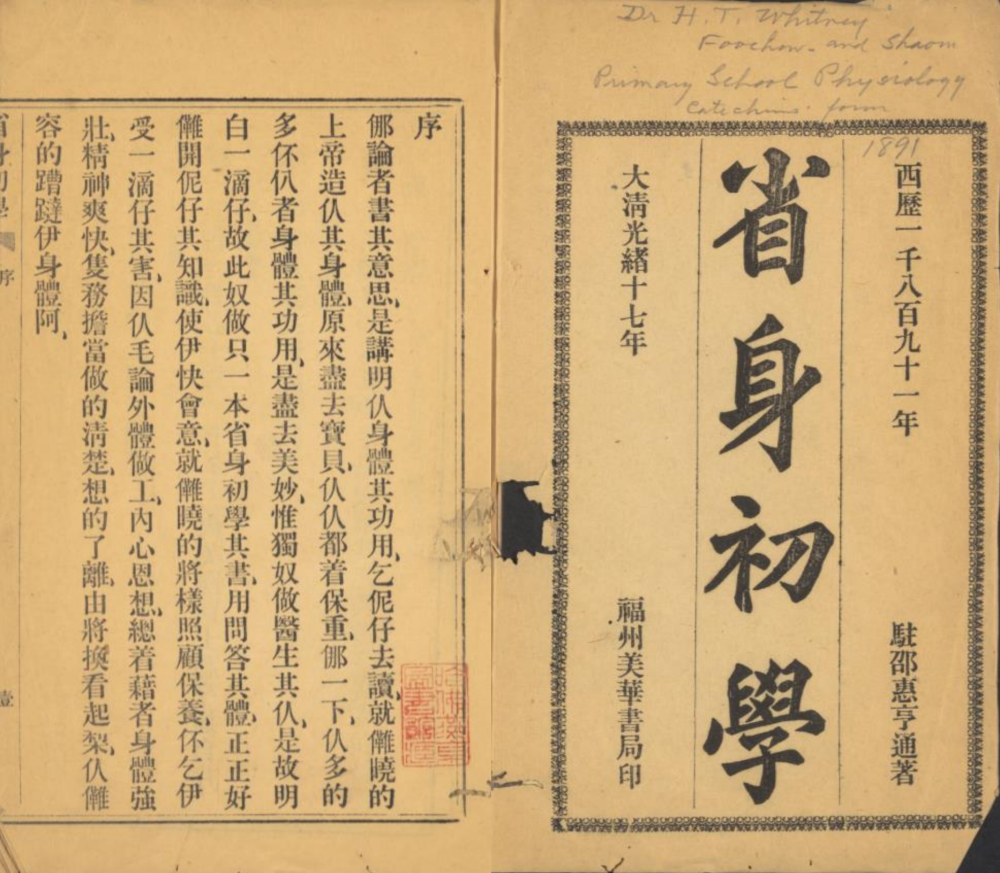 Dr H. T. Whitney
Foochow- and Shaown
Primary School Physiology
Catechism form
1891
西歷一千八百九十一年
駐邵惠亨通著
省身初學
大清光緒十七年
福州美華書局印
序
㑚論者書其意思、是講明仈身體其功用、乞伲仔去讀、就儺曉的
上帝造仈其身體、原來盡去寶貝、仈仈都着保重、㑚一下、仈多的
多伓仈者身體其功用、是盡去美妙、惟獨奴做醫生其仈、是故明
白一滴仔、故此奴做只一本省身初學其書、用問答其體、正正好
儺開伲仔其知識、使伊快會意、就儺曉的將樣照顧保養、伓乞伊
受一滴仔其害、因仈毛論外體做工、內心恩想、總着藉者身體強
壯、精神爽快、隻務擔當做的清楚、想的了離、由將換看起梨、仈儺
容的蹧躂伊身體阿、
省身初學
序
壹